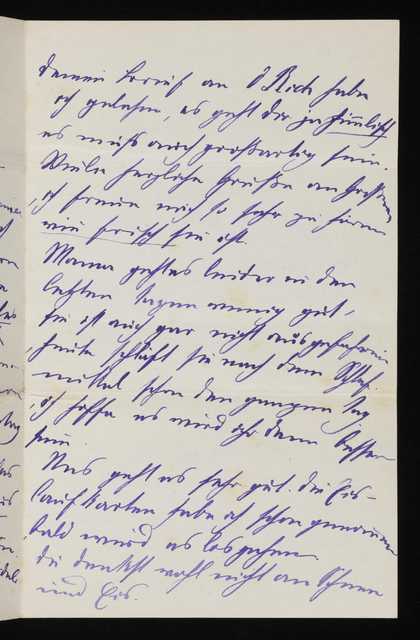 Deinen Brief an O Rich habe
ich gelesen, es geht Dir ja himmlisch
es muß auch großartig sein.
Viele herzliche Grüße an
ich freue mich so sehr zu hören
wie frisch sie ist.
Mama geht es leider in den
letzten Tagen wenig gut,
sie ist auch gar nicht ausgefahren
heute schläft sie nach dem Schlaf-
mittel schon den ganzen Tag
ich hoffe es wird ihr dann besser
sein.
Uns geht es sehr gut. Die Eis-
laufkarten habe ich schon genommen
bald wird es losgehen
Du denkst wohl nicht an Schnee
und Eis.